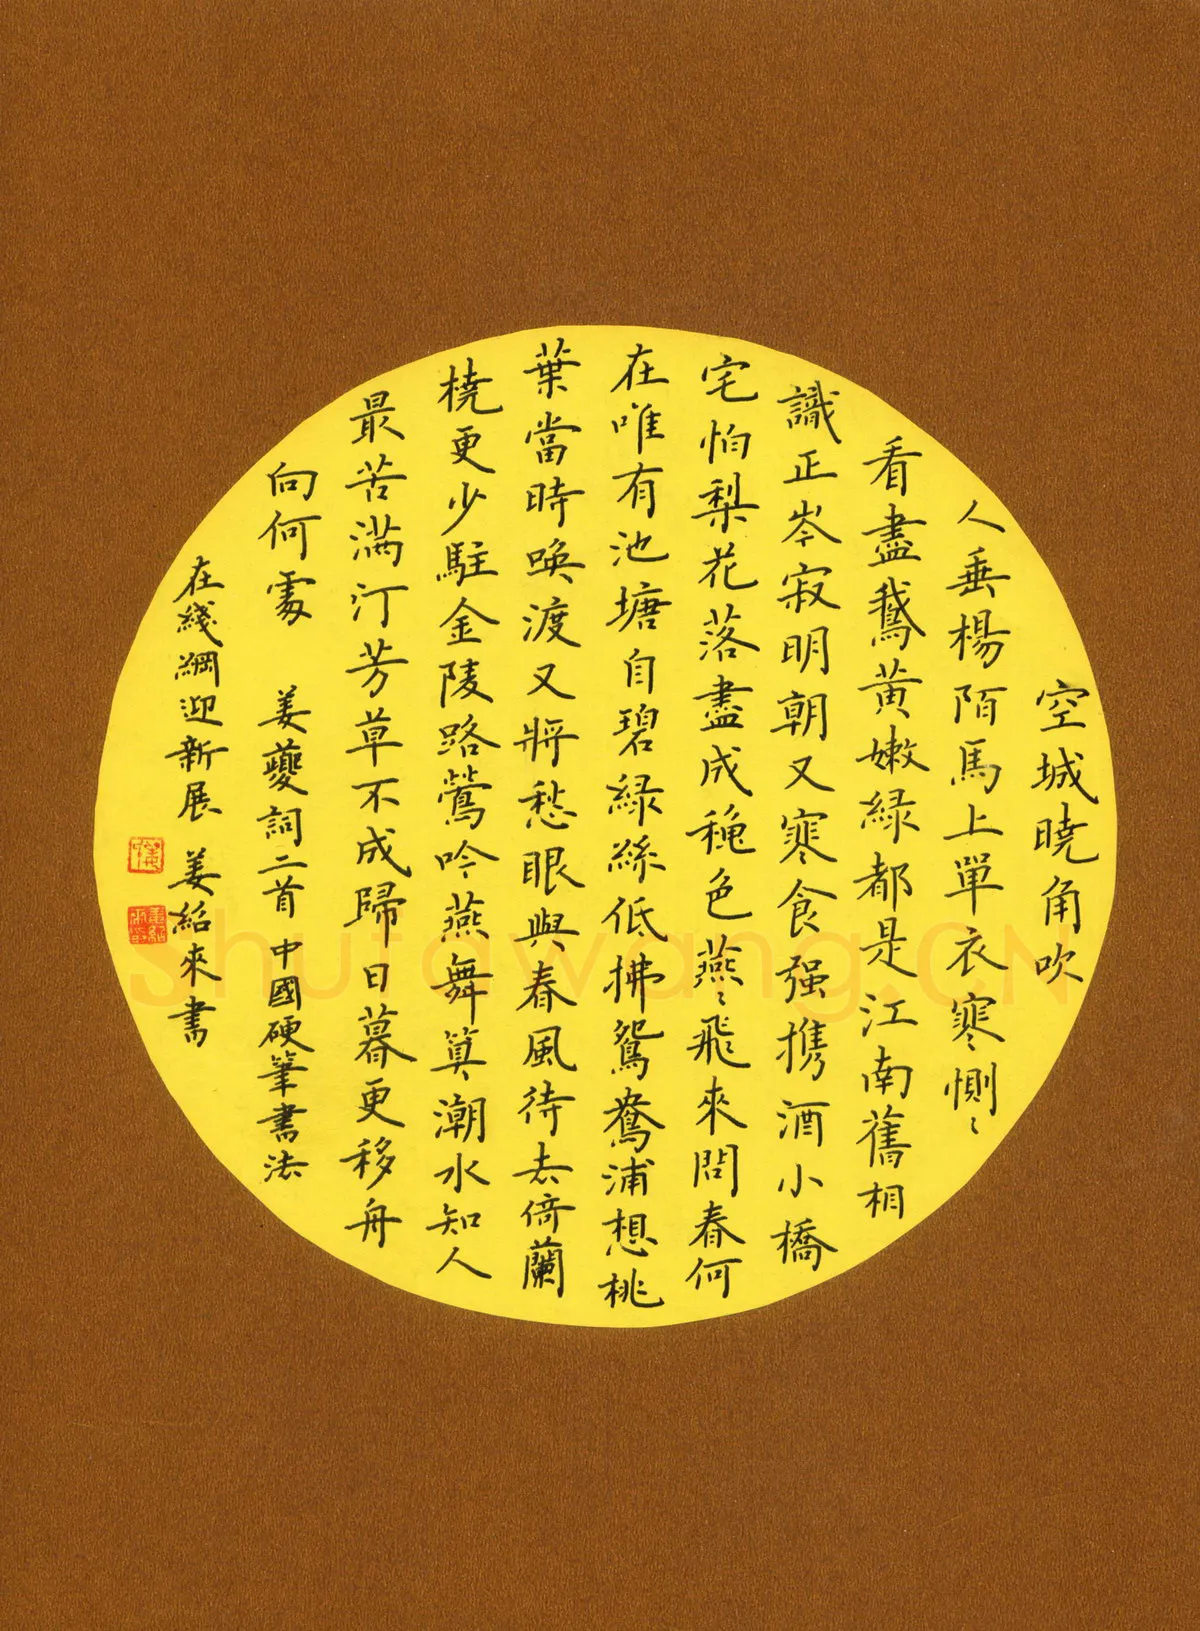 空城曉角吹
人垂楊陌馬上單衣寒惻〻
看盡鵝黃嫩緑都是江南舊相
識正岑寂明朝又寒食强携酒小橋
宅怕梨花落盡成秋色燕〻飛來問春何
在唯有池塘自碧緑絲低拂鴛鴦浦想桃
葉當時喚渡又將愁眼與春風待去倚蘭
橈更少駐金陵路鶯吟燕舞算潮水知人
最苦滿汀芳草不成歸日暮更移舟
向何處 姜夔詞二首 中國硬筆書法
在綫網迎新展 姜紹來書
shufawang.CN